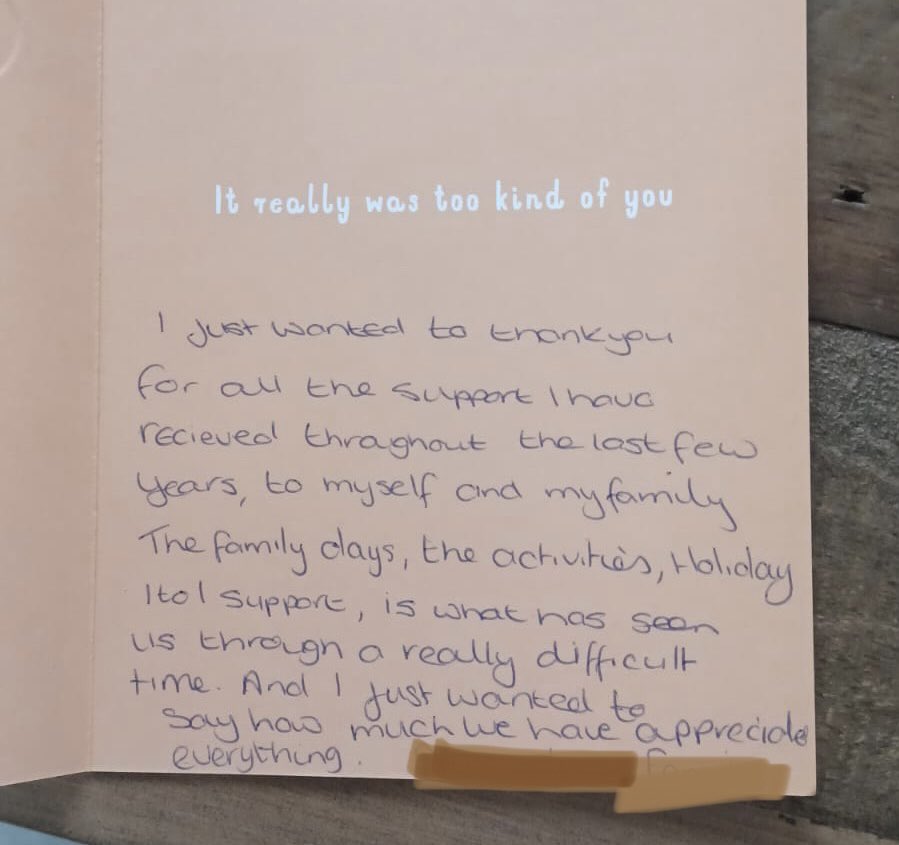 It really was too kind of you
I just wanted to thankyou
for all the support I have
recieved thraghout the last few
years, to myself and my family
The family days, the activities, Holiday
1to1 support, is what has seen
us through a really difficult
time. And I just wanted to
Say how much we have appreciate
everything.